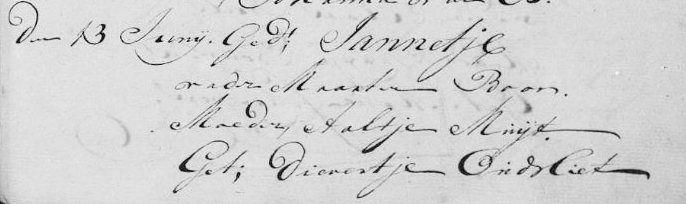 Den 13 Junij. Gedt; Jannetje
vader Maarten Boon.
Moeder, Aaltje Muijt
Get; Dievertje